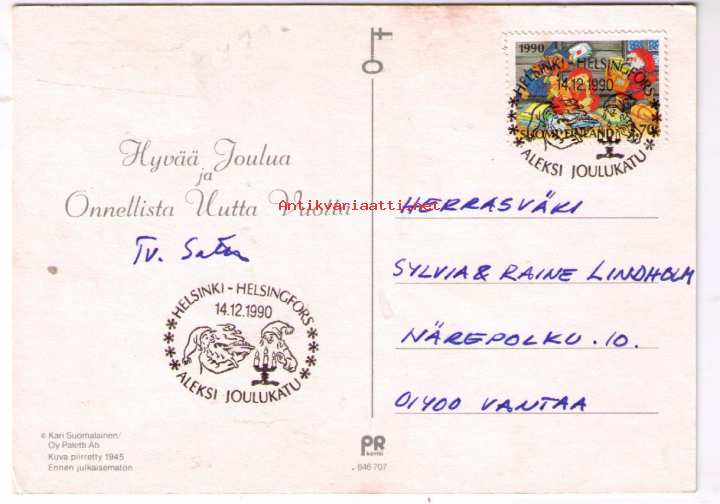 Hyvää Joulua
ja
Onnellista Uutta Vuotta
Antikvariaatti.net
Tv.
HELSINKI - HELSINGFORS
14.12.1990
ALEKSI JOULUKATU
© Kari Suomalainen/
Oy Paletti Ab
Kuva piirretty 1945
Ennen julkaisematon
PR
kortti
846 707
1990
HELSINKI - HELSINGFORS
14.12.1990
SUOMI FINLAND
ALEKSI JOULUKATU
HERRASVÄKI
SYLVIA & RAINE LINDHOLM
NÄREPOLKU .10.
01400 VANTAA